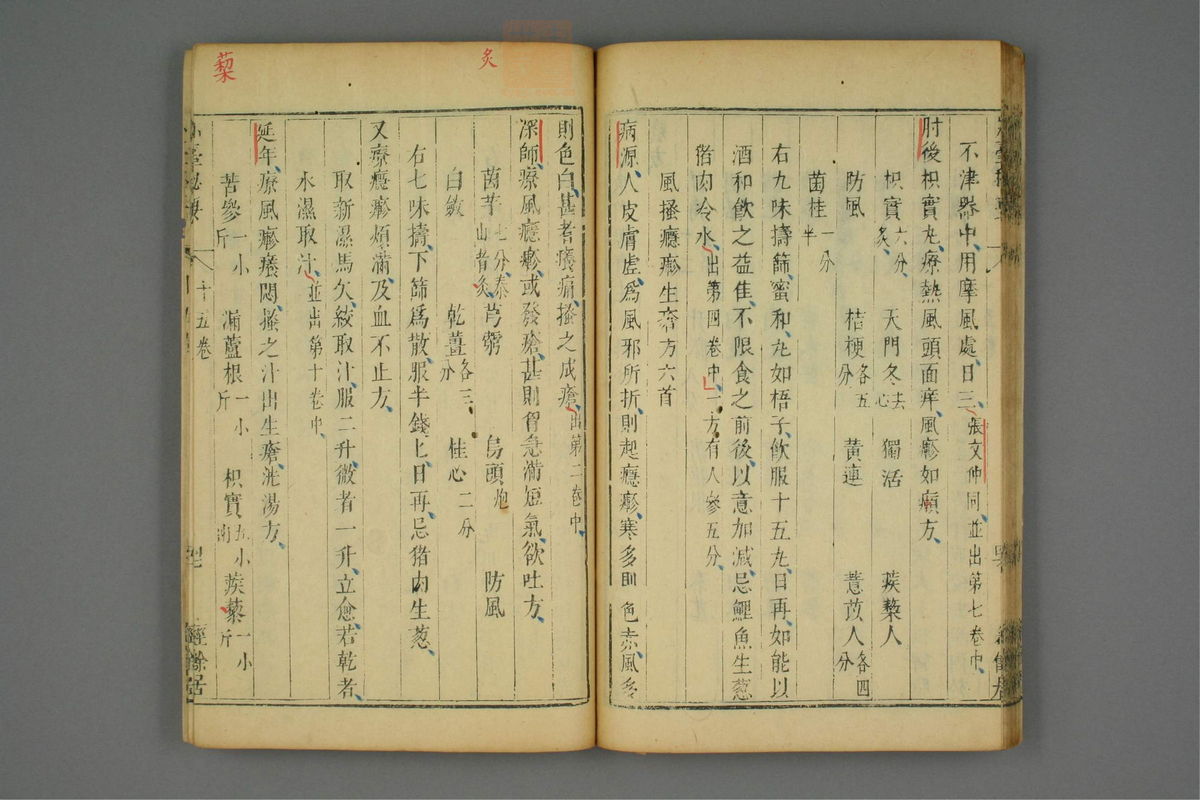 不津器中用摩風處日三張文仲同並出第七卷中
肘後枳實丸療熱風頭面痒風瘮如癩方
枳實六分炙 天門冬去心 獨活 蒺䔧人
防風 桔梗各五分 黃連 薏苡人各四分
菌桂一分半
右九味擣篩蜜和丸如梧子飲服十五丸日再如能以
酒和飲之益佳不限食之前後以意加減忌鯉魚生葱
猪肉冷水出第四卷中一方有人參五分
風搔癮瘮生瘡方六首
病源人皮膚虛爲風邪所折則起癮瘮寒多則色赤風多
則色白甚者癢痛搔之成瘡出第二卷中
深師療風癮瘮或發瘡甚則胷急滿短氣欲吐方
茵芋七分 芎藭 烏頭炮 防風
白斂 乾薑各三分 桂心二分
右七味擣下篩爲散服半錢匕日再忌猪肉生葱
又療癮瘮煩滿及血不止方
取新濕馬矢絞取汁服二升微者一升立愈若乾者
水濕取汁並出第十卷中
延年療風瘮癢悶搔之汁出生瘡洗湯方
苦參一小斤 漏蘆根一小斤 枳實五小兩 蒺藜一小斤
十五卷
經餘居
炙
藜